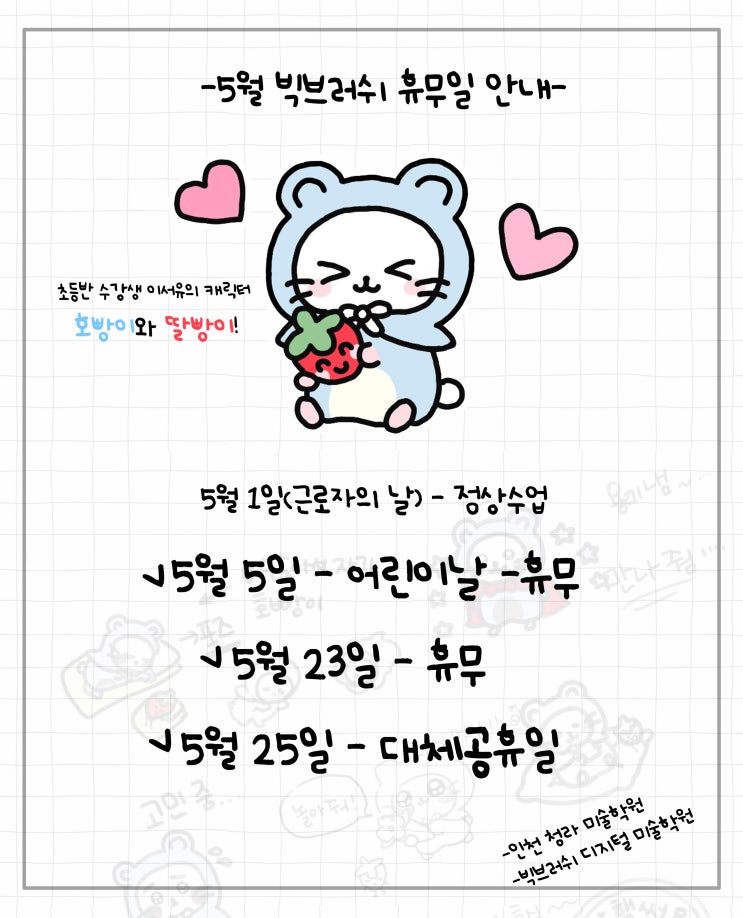 -5월 빅브러쉬 휴무일 안내-
초등반 수강생 이서유의 캐릭터
호빵이와 딸빵이!
5월 1일(근로자의 날) - 정상수업
용기냄~...
✓5월 5일 - 어린이날 -휴무
만나 줌!...
호빵이
→포즈
✓5월 23일 - 휴무
✓5월 25일 - 대체공휴일
고민 중...
놀아줘!
-인천 청라 미술학원
-빅브러쉬 디지털 미술학원